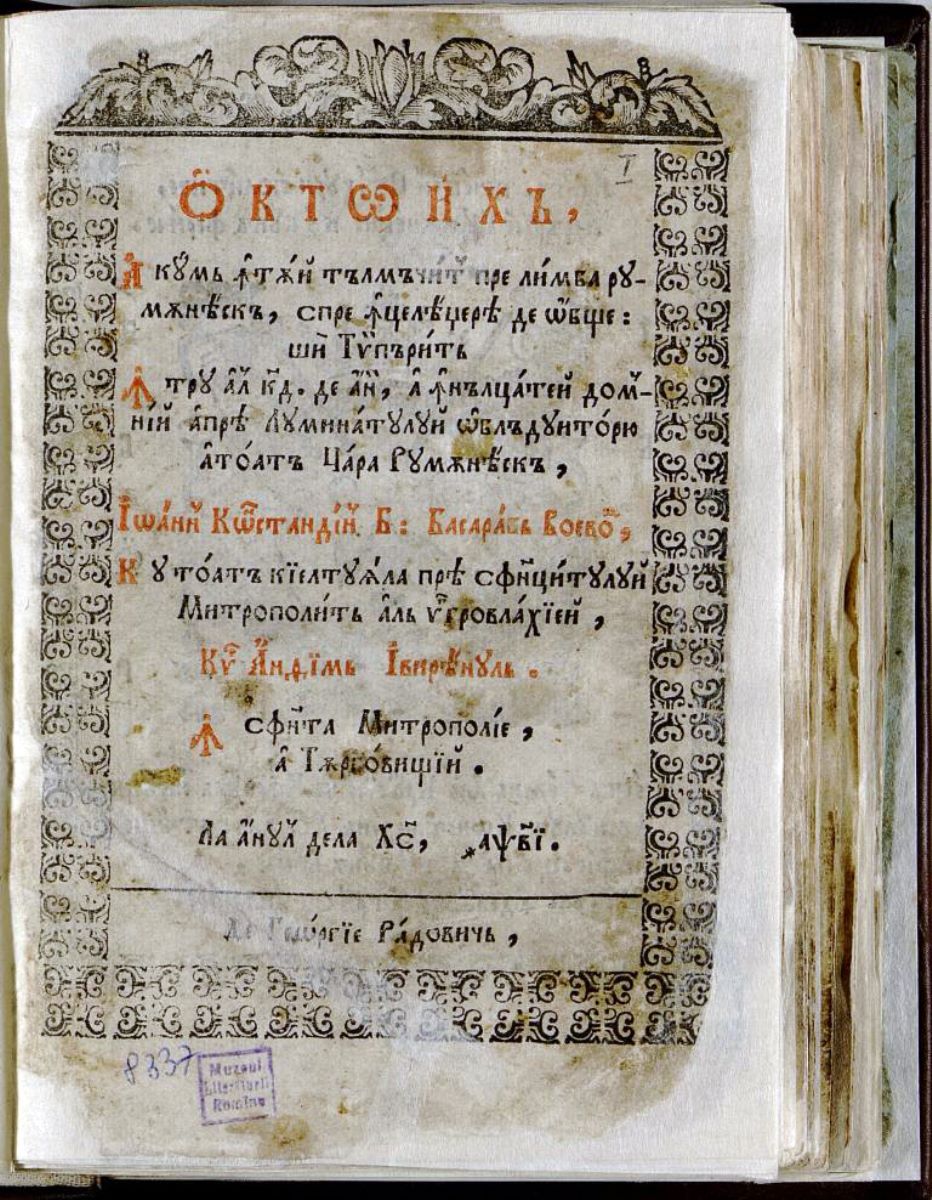 I
Ѻ҆КТѠИХЪ,
А҆кꙋ́мь ꙟ҆тѫ́й тълмъчи́т пре ли́мба рꙋ-
мѫнѣ́скъ, спре ꙟ҆целѣ́џерѣ де ѡ҆́бще:
ши̑ Тѷпъри́тъ
Ꙟ҆трꙋ а҆л к҃д. де а҆́нй, а҆ ꙟ҆нълца́тей дом-
ні́й а҆прѣ Лꙋмина́тꙋлꙋй ѡ҆блъдꙋито́рю
а҆то́атъ Цѣ́ра Рꙋмѫнѣ́скъ,
І҆ѡа́нй Кѡⷩ҇стандін. Б: Басара́бъ Воево́ⷣ,
Кꙋ то́атъ кїелтꙋѧ́ла прѣ сфинци́тꙋлꙋй
Митрополи́тъ а҆ль ѹ҆гровла́хїей,
Кѵⷬ҇ А҆́нѳімь І҆вирѣ́нꙋль.
Ꙟ҆ сфи́нта Митрополі́е,
а҆ Тѫрго́вищїй.
Ла а҆́нꙋл дела Хс҃, ҂аѱв҃і.
Де Гео́ргїе Ра́довичь,
8337
Muzeul
Literaturii
Romîne